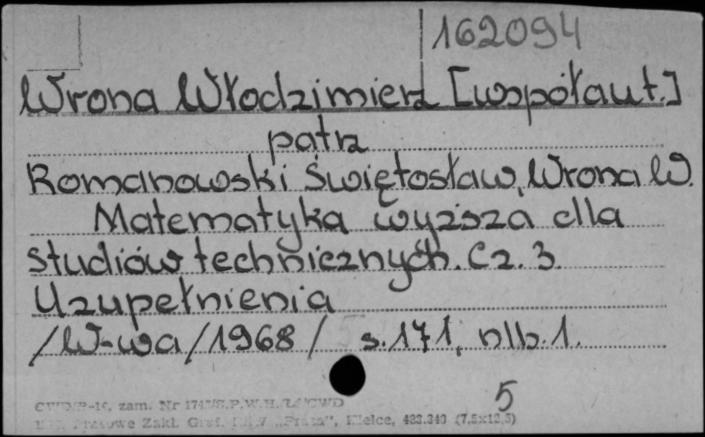 162094
Wrona Włodzimierz [współaut.]
patrz
Romanowski Świętosław, Wrona W.
Matematyka wyższa dla
studiów technicznych. Cz. 3.
Uzupełnienia
/W-wa/1968/ s. 171, nlb. 1.
5
zam. Nr
Zakł. Graf. Kielce, (7,5x12,5)